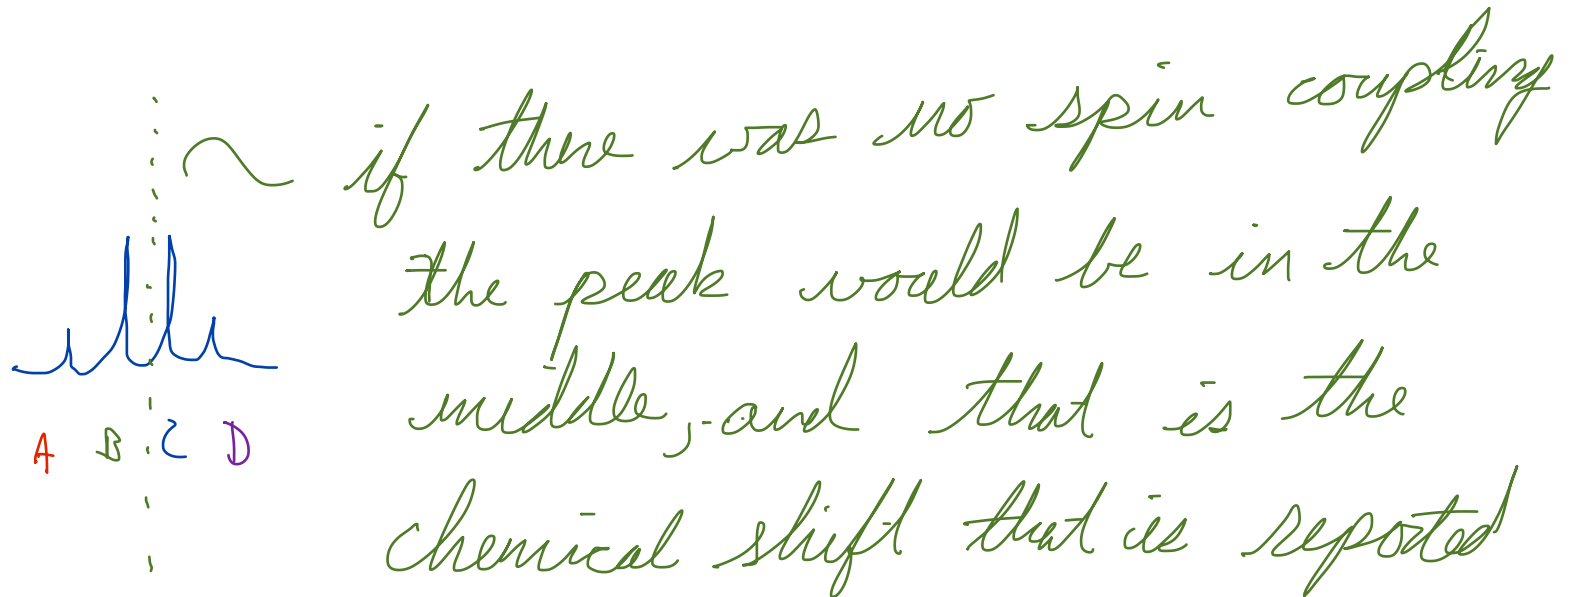 if there was no spin coupling
the peak would be in the
middle, and that is the
A B C D
chemical shift that is reported